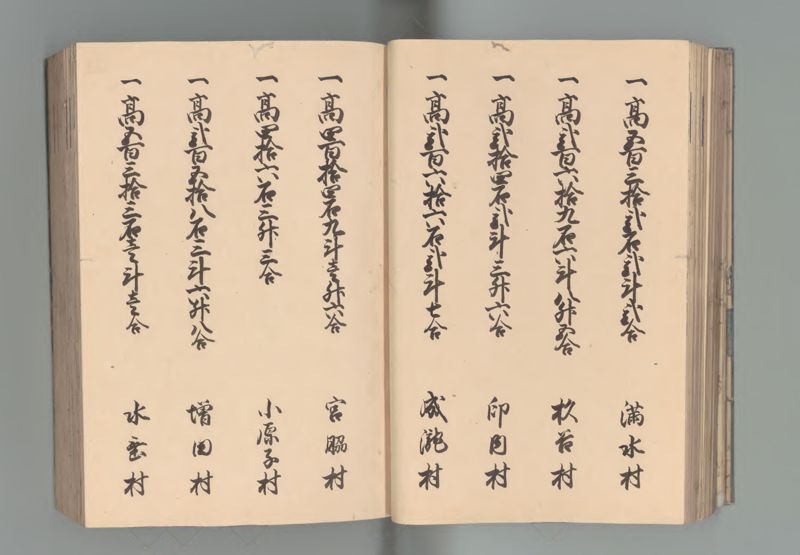 一高五百三拾弐石弐斗弐合 満水村
一高弐百六拾九石六斗八升五合 杦谷村
一高弐拾四石弐斗三升六合 印内村
一高弐百六拾六石弐斗七合 成瀧村
一高四百拾四石九斗壱升六合 宮脇村
一高四拾六石三升三合 小原子村
一高弐百五拾八石三斗六升八合 増田村
一高五百三拾三石壱斗壱合 水垂村